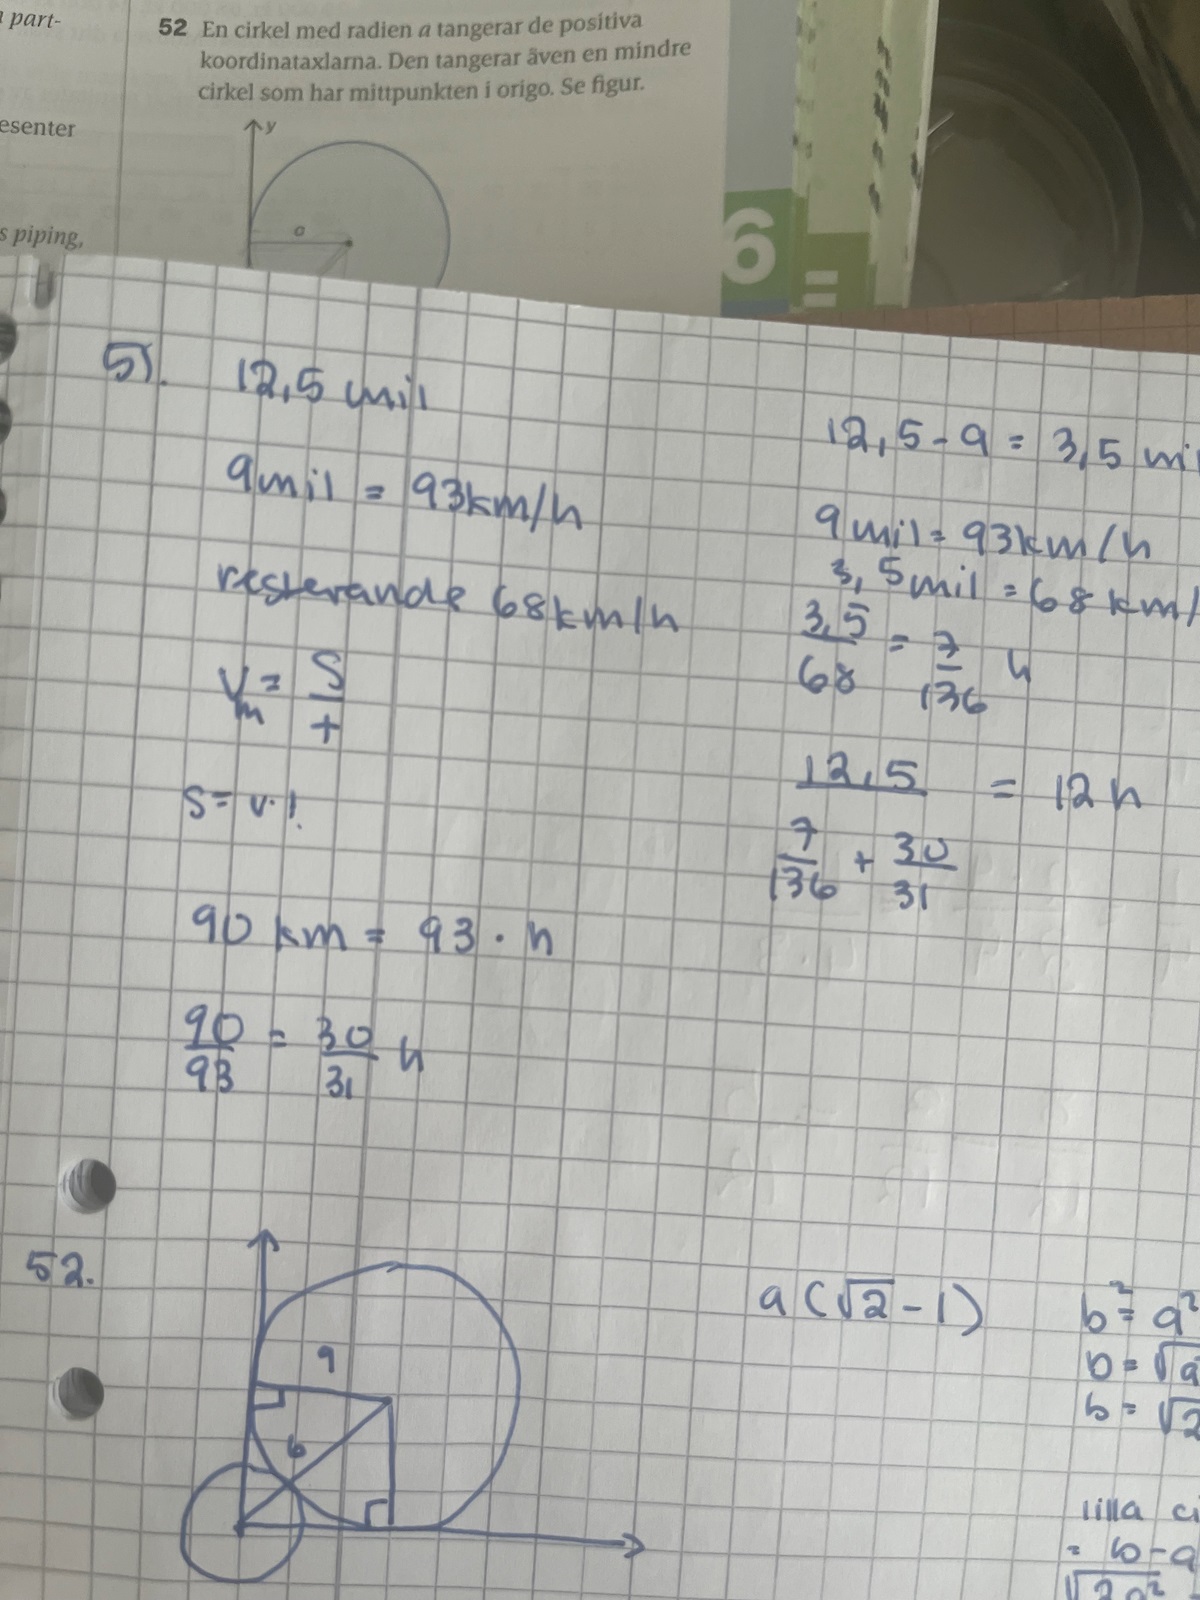 part-
esenter
s piping,
52 En cirkel med radien a tangerar de positiva
koordinataxlarna. Den tangerar även en mindre
cirkel som har mittpunkten i origo. Se figur.
y
a
6
=
51. 12,5 mil
9mil = 93km/h
resterande 68km/h
Vm = S/t
S = v.
90 km = 93 · h
90/93 = 30/31 h
12,5 - 9 = 3,5 mi
9mil = 93km/h
3,5mil = 68km/
3,5/68 = 7/136 h
12,5 / (7/136 + 30/31) = 12h
52.
a
b
a(√2 - 1)
b² = a²
b = √a
b = √2
lilla ci
= b-a
√2a²